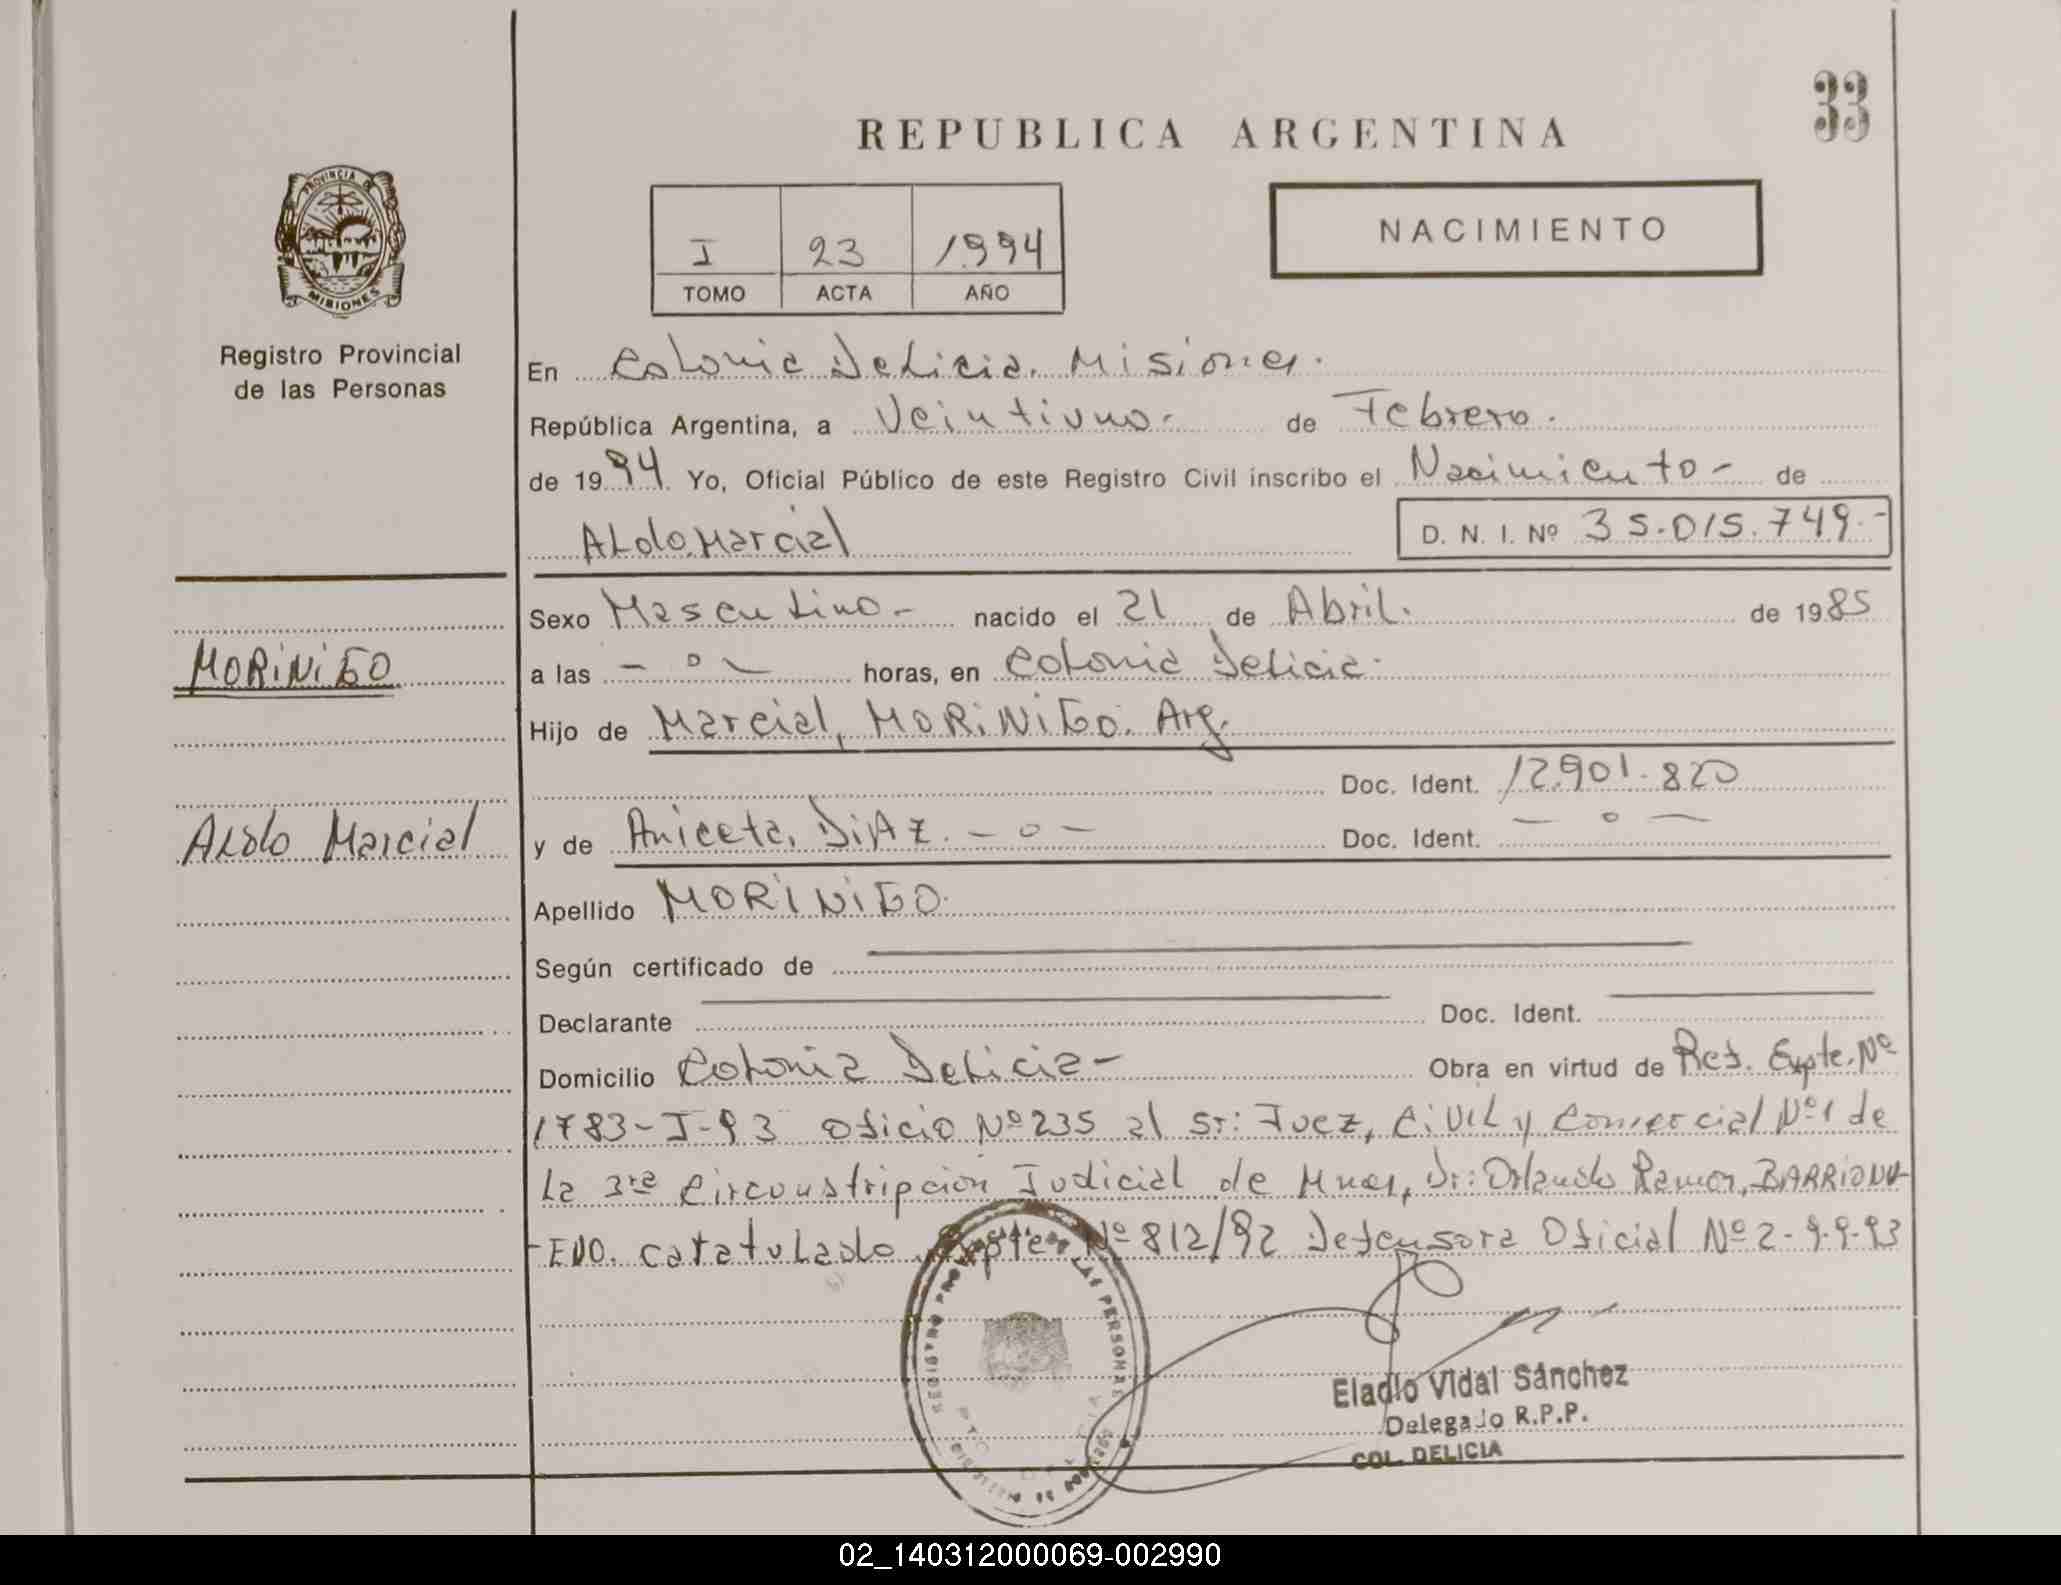 33
REPUBLICA ARGENTINA
PROVINCIA DE
MISIONES
I 23 1994
TOMO ACTA AÑO
NACIMIENTO
Registro Provincial
de las Personas
En Colonia Delicia. Misiones.
República Argentina, a Veintiuno.- de Febrero.
de 1994. Yo, Oficial Público de este Registro Civil inscribo el Nacimiento- de
ALdo Marcial D. N. I. Nº 35.015.749.-
Sexo MascuLino.- nacido el 21 de Abril. de 1985
MORiNiGO
a las - o - horas, en Colonia Delicia.
Hijo de Marcial, MORiNiGO. Arg.
Doc. Ident. 12.901.820
ALdo Marcial
y de Aniceta, DiAz. - o - Doc. Ident. - o -
Apellido MORiNiGO.
Según certificado de
Declarante Doc. Ident.
Domicilio Colonia Delicia- Obra en virtud de Ref. Expte. Nº
1783-I-93 Oficio Nº 235 al Sr: Juez, CiViL y Comercial Nº 1 de
La 3ra Circunstripcion Judicial de Mnes, Dr: Orlando Ramon, BARRiONU-
-EVO. caratulado Expte Nº 812/92 Defensora Oficial Nº 2-9-9-93
REGISTRO PROVINCIAL DE LAS PERSONAS
Eladio Vidal Sánchez
Delegado R.P.P.
COL. DELICIA
02_140312000069-002990